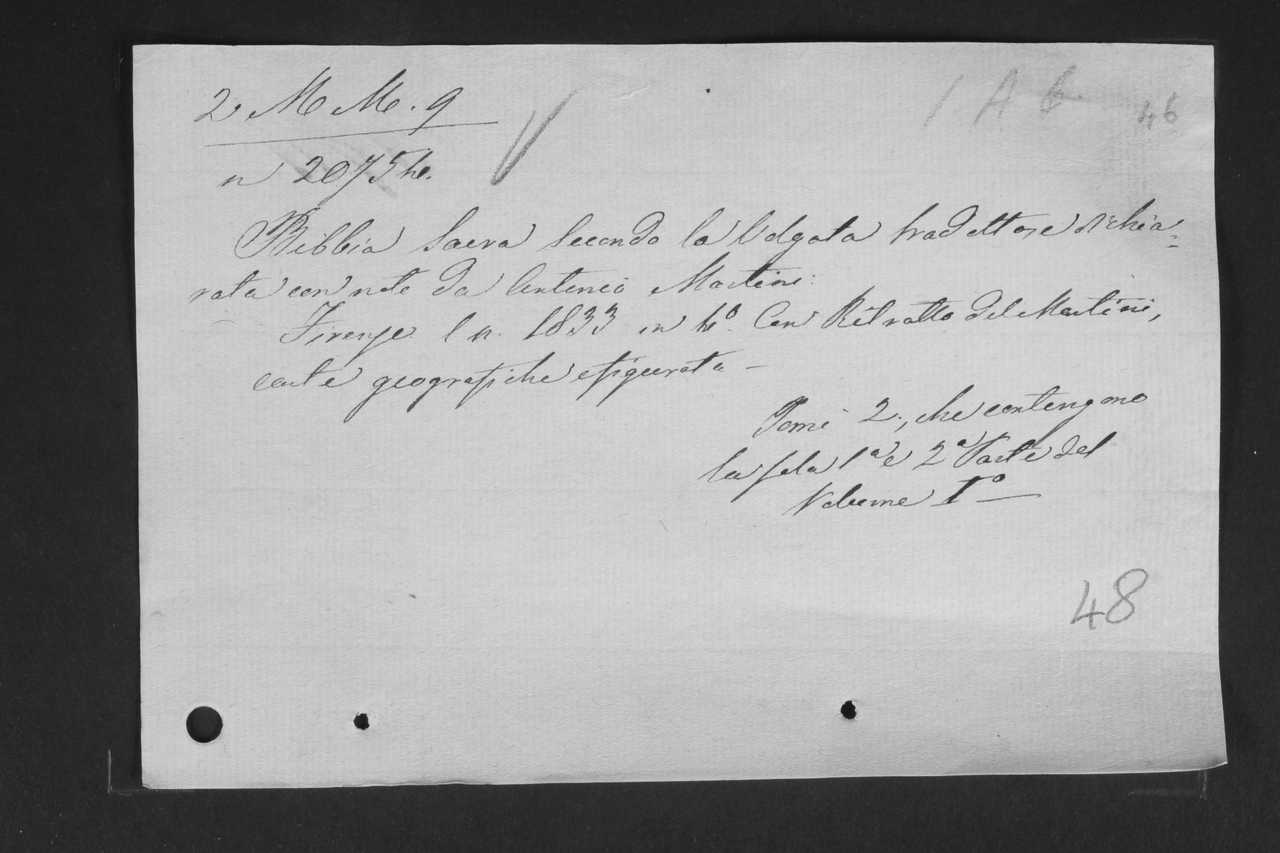 2 M M. 9
1 A 6
46
n 2075
Bibbia Sacra secondo la Volgata tradotta, e dichia=
rata con note da Antonio Martini.
Firenze 1833 in 4º. Con Ritratto del Martini,
carte geografiche e figurata –
Tomi 2, che contengono
la sola 1ª e 2ª Parte del
Volume Iº –
48